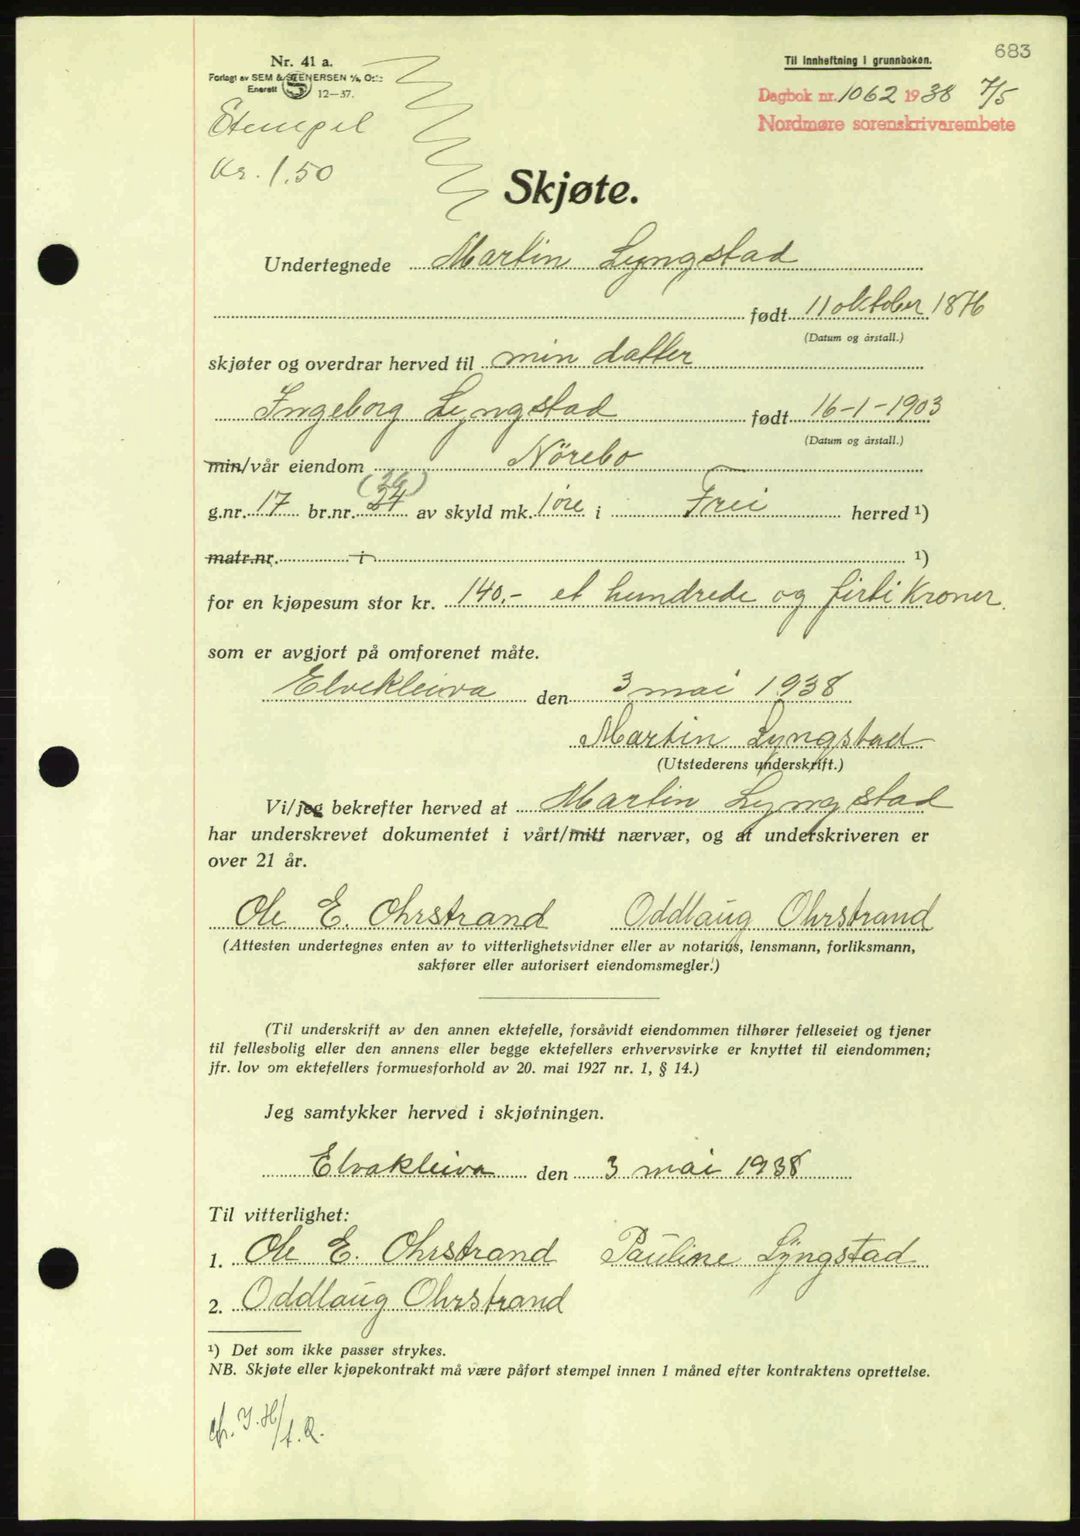 683
Nr. 41 a.
Forlagt av SEM & STENERSEN A/S, Oslo
Enerett 12—37.
Til innheftning i grunnboken.
Dagbok nr. 1062 1938 7/5
Nordmøre sorenskrivarembete
Stempel
Kr. 1.50
Skjøte.
Undertegnede Martin Lyngstad
født 11 oktober 1876
(Datum og årstall.)
skjøter og overdrar herved til min datter
Ingeborg Lyngstad født 16-1-1903
(Datum og årstall.)
min/vår eiendom Nörebo
(26)
g.nr. 17 br.nr. 24 av skyld mk. 1 øre i Frei herred ¹)
matr.nr. i ¹)
for en kjøpesum stor kr. 140,- et hundrede og firti Kroner.
som er avgjort på omforenet måte.
Elvekleiva den 3 mai 1938
Martin Lyngstad
(Utstederens underskrift.)
Vi/jeg bekrefter herved at Martin Lyngstad
har underskrevet dokumentet i vårt/mitt nærvær, og at underskriveren er
over 21 år.
Ole E. Ohrstrand Oddlaug Ohrstrand
(Attesten undertegnes enten av to vitterlighetsvidner eller av notarius, lensmann, forliksmann,
sakfører eller autorisert eiendomsmegler.)
(Til underskrift av den annen ektefelle, forsåvidt eiendommen tilhører felleseiet og tjener
til fellesbolig eller den annens eller begge ektefellers erhvervsvirke er knyttet til eiendommen;
jfr. lov om ektefellers formuesforhold av 20. mai 1927 nr. 1, § 14.)
Jeg samtykker herved i skjøtningen.
Elvakleiva den 3 mai 1938
Til vitterlighet:
1. Ole E. Ohrstrand Pauline Lÿngstad
2. Oddlaug Ohrstrand
¹) Det som ikke passer strykes.
NB. Skjøte eller kjøpekontrakt må være påført stempel innen 1 måned efter kontraktens oprettelse.